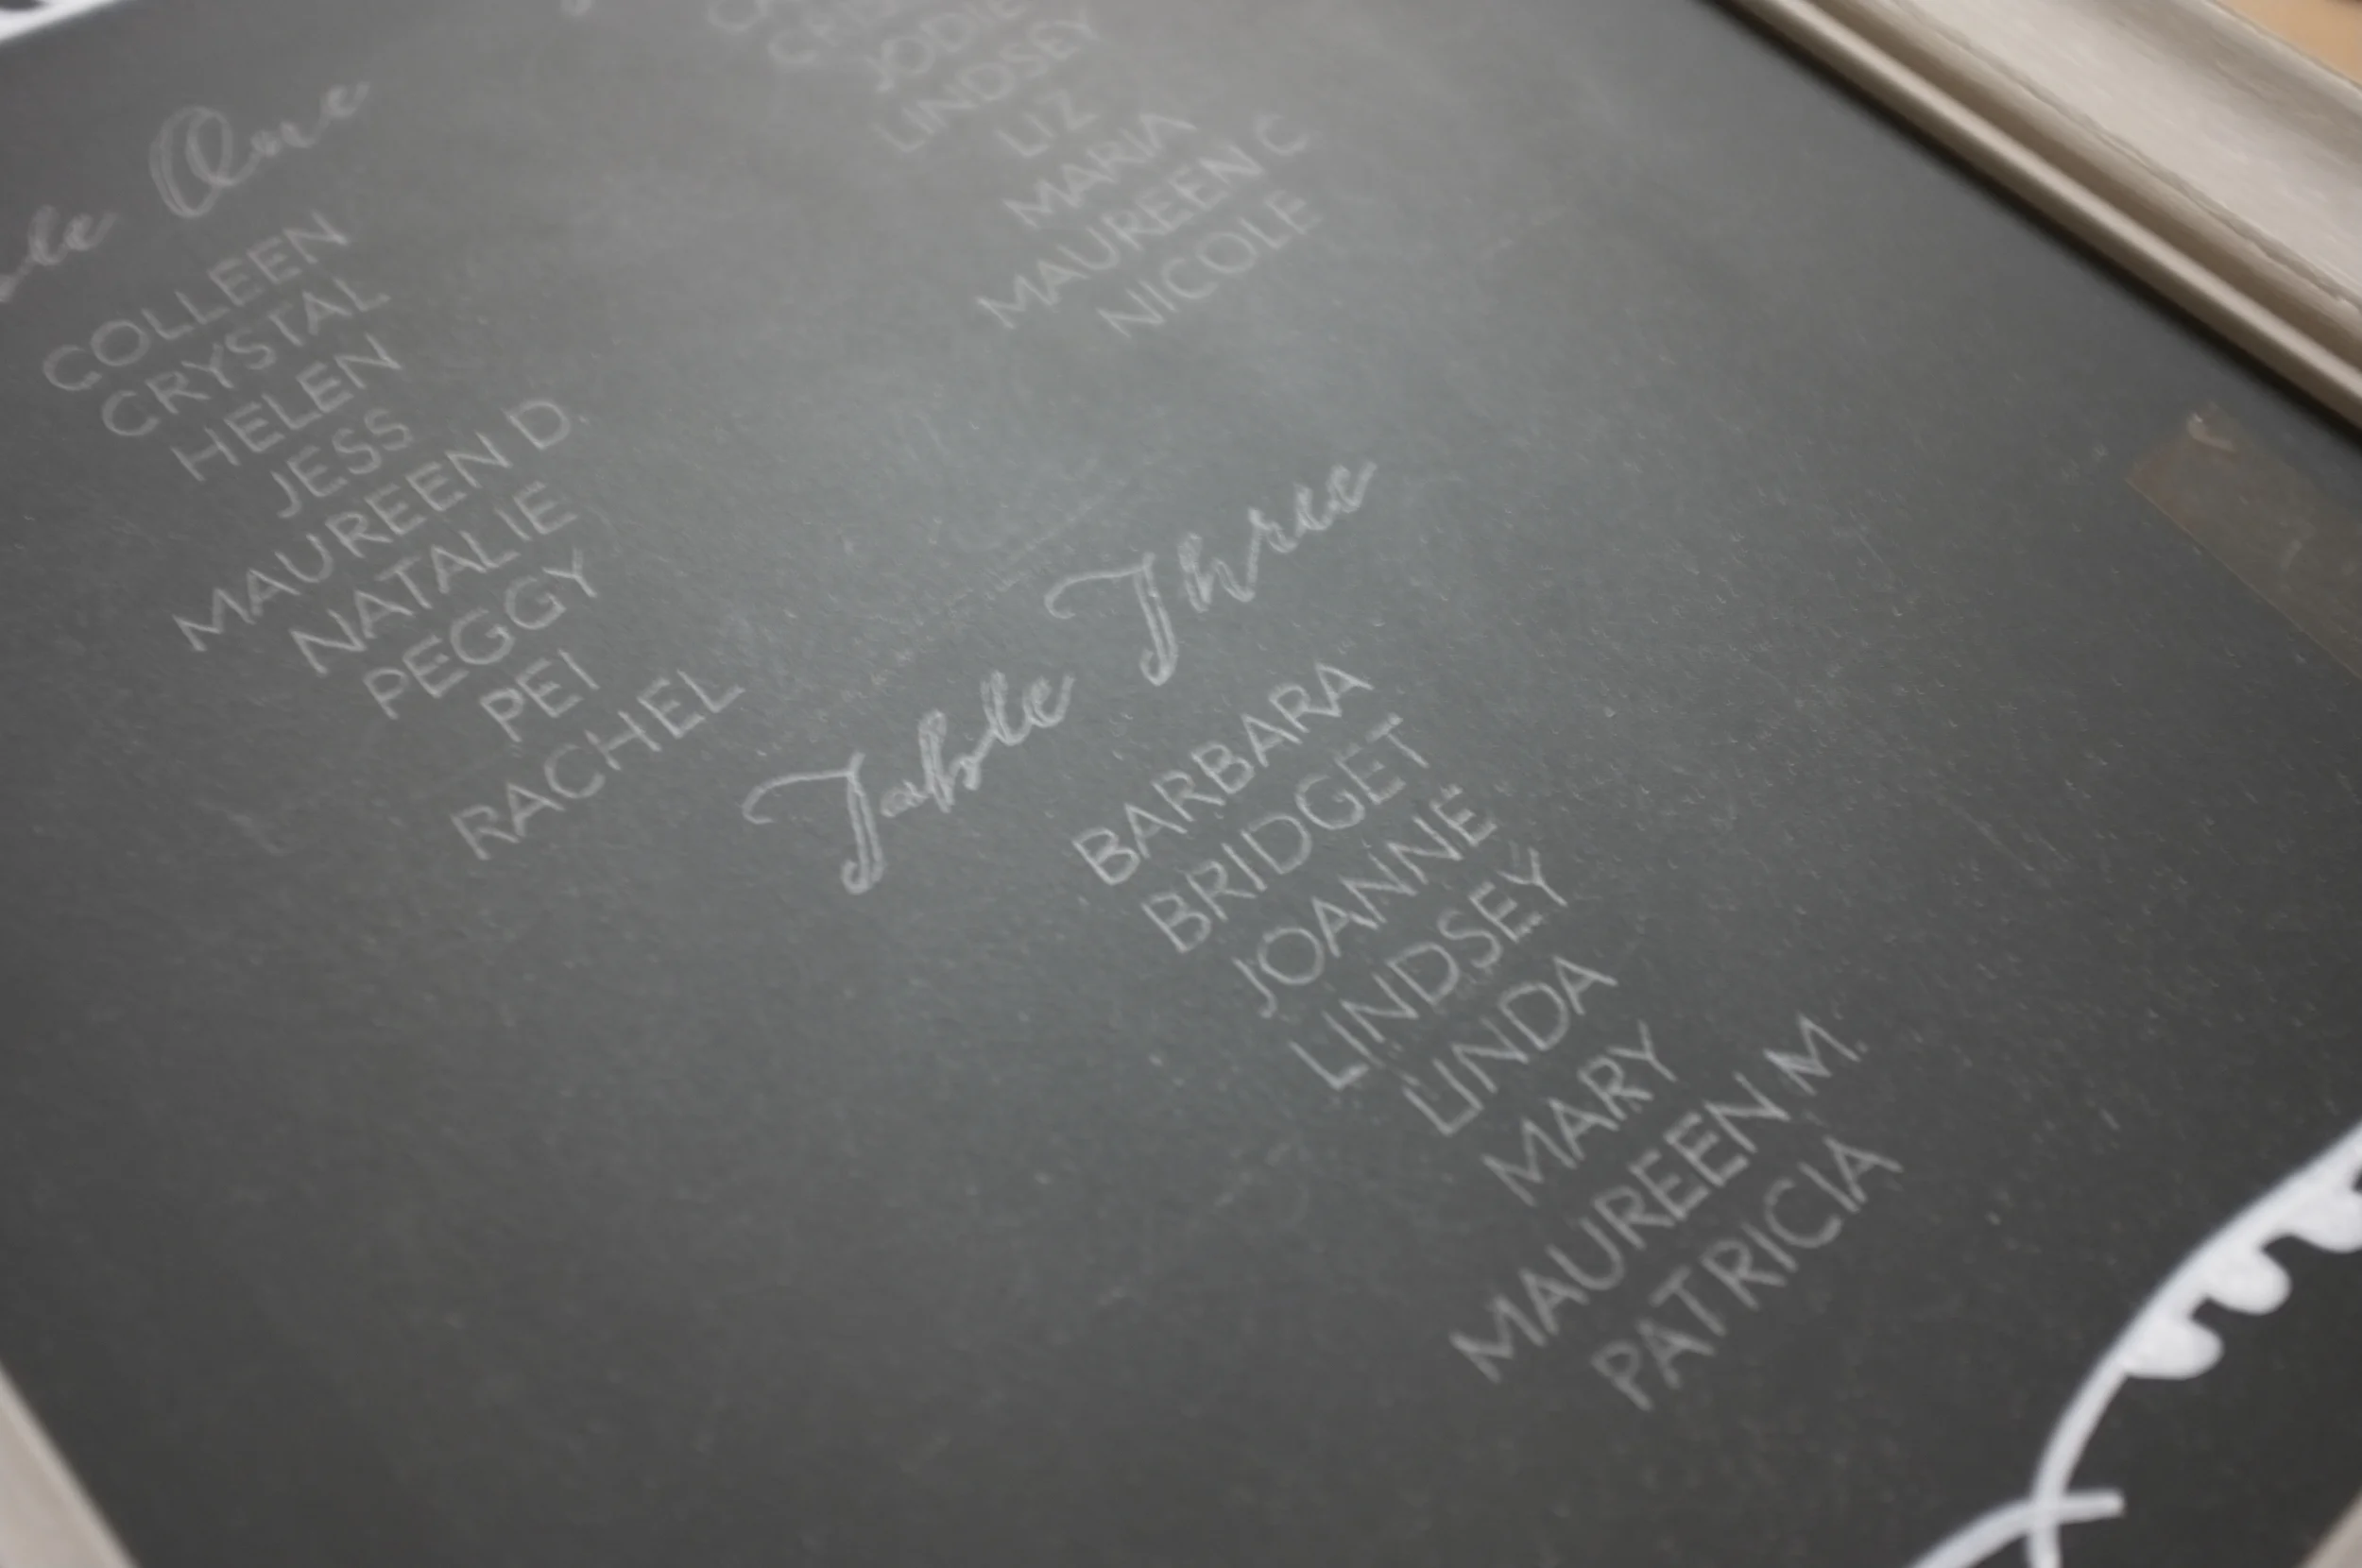 Table One
COLLEEN
CRYSTAL
HELEN
JESS
MAUREEN D.
NATALIE
PEGGY
PEI
RACHEL
JODIE
LINDSEY
LIZ
MARIA
MAUREEN C
NICOLE
Table Three
BARBARA
BRIDGET
JOANNE
LINDSEY
LINDA
MARY
MAUREEN M.
PATRICIA